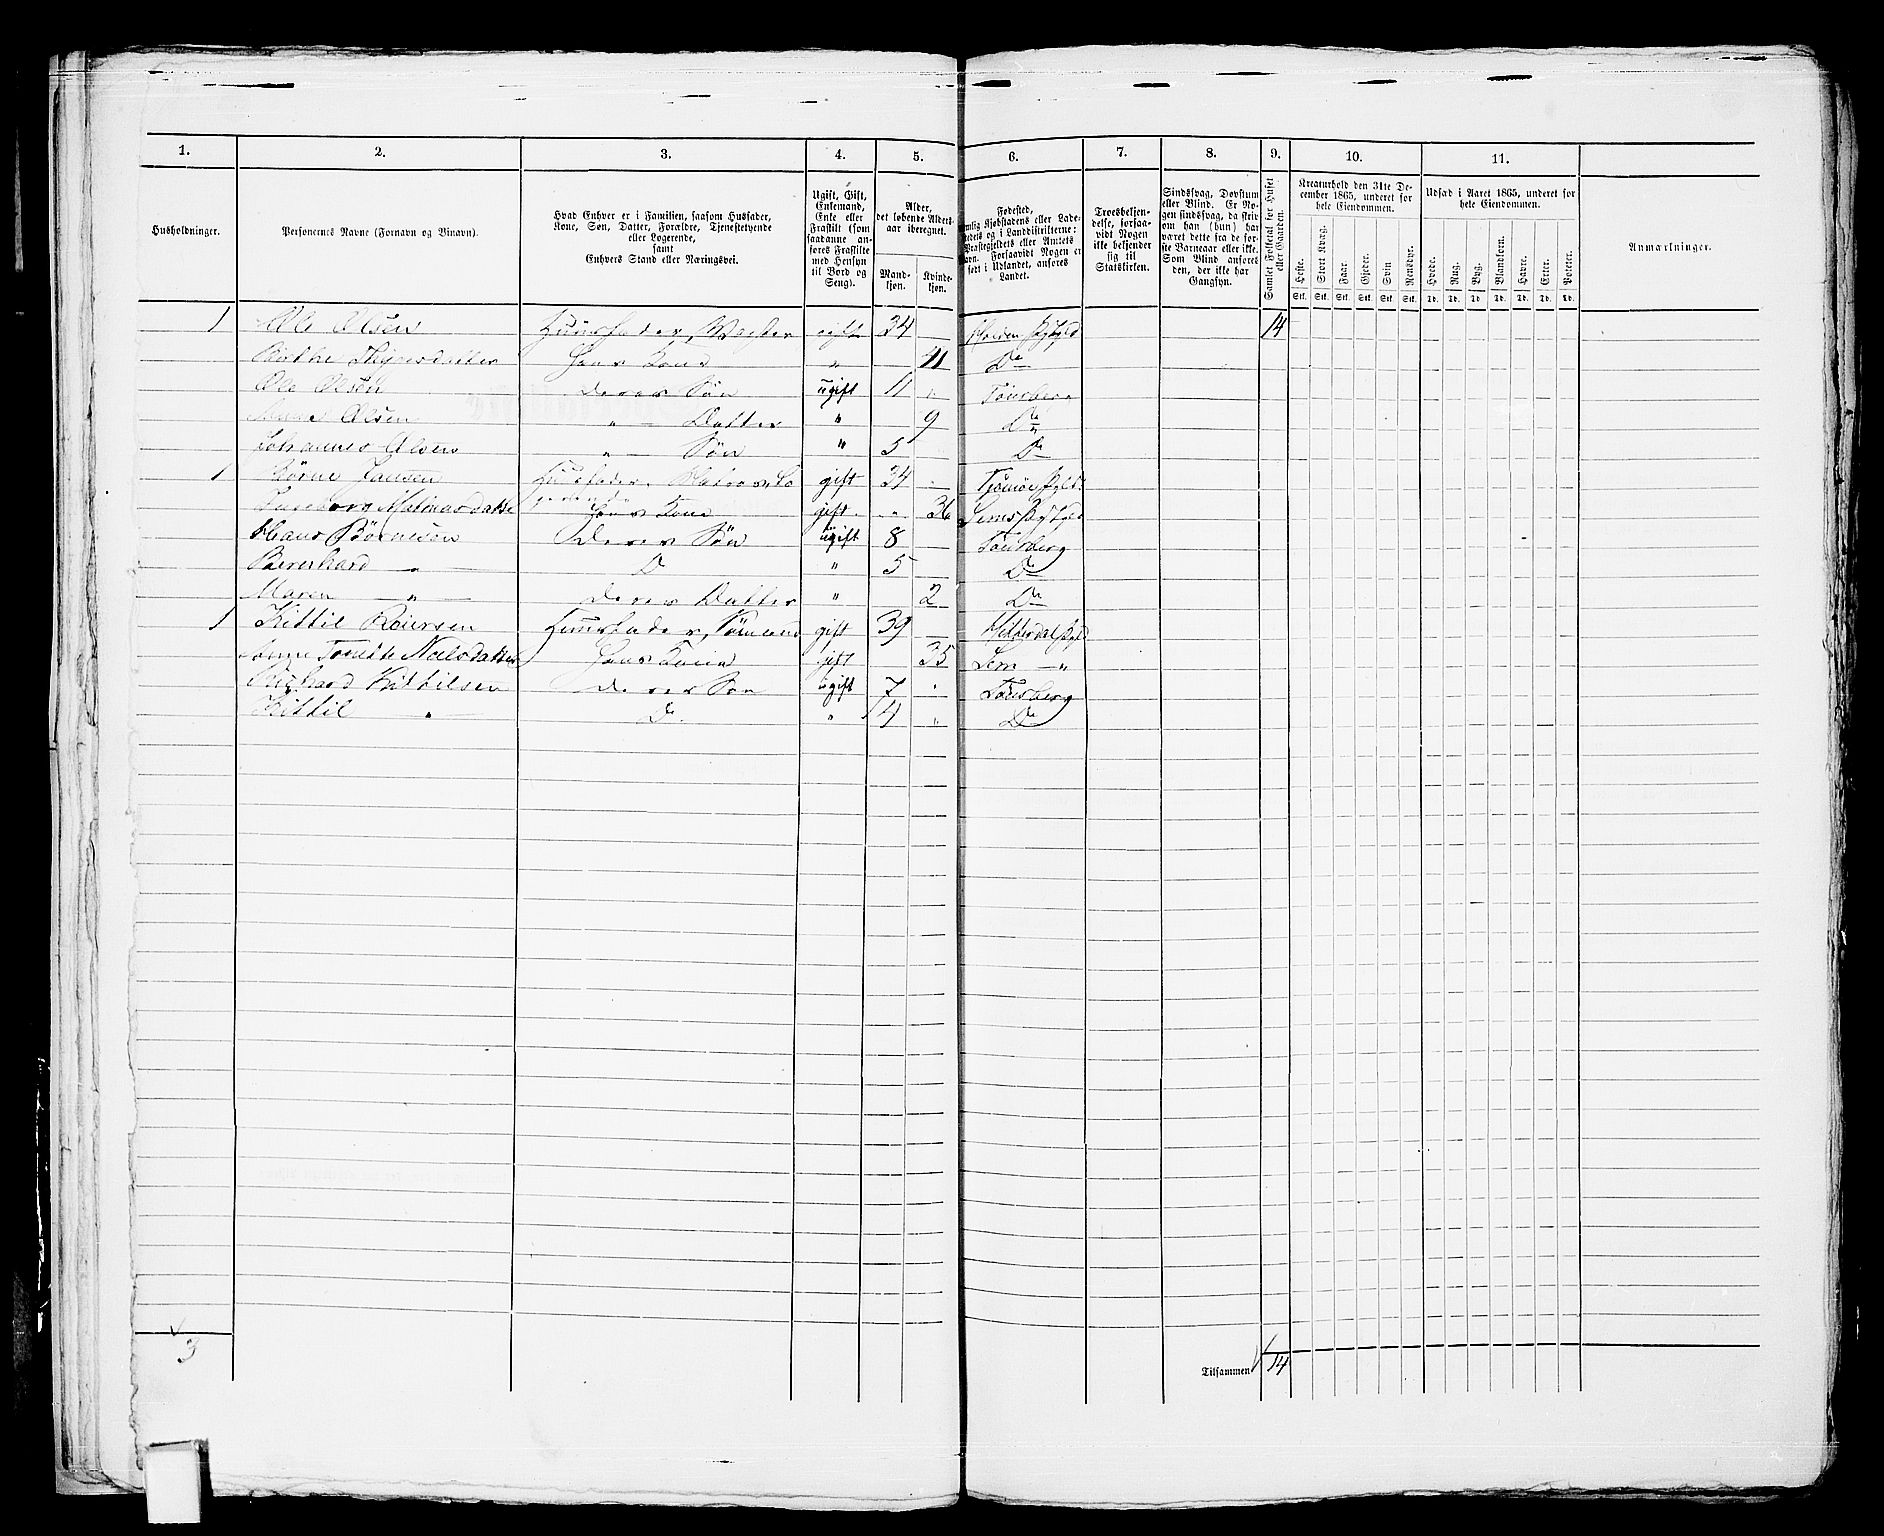 1. 2. 3. 4. 5. 6. 7. 8. 9. 10. 11.
Husholdninger.
Personernes Navne (Fornavn og Binavn).
Hvad Enhver er i Familien, saasom Husfader,
Kone, Søn, Datter, Forældre, Tjenestetyende
eller Logerende,
samt
Enhvers Stand eller Næringsvei.
Ugift, Gift,
Enkemand,
Enke eller
Fraskilt (som
saadanne an-
føres Fraskilte
med Hensyn
til Bord og
Seng).
Alder,
det løbende Alders-
aar iberegnet.
Mand-
kjøn.
Kvinde-
kjøn.
Fødested,
Kjøbstadens eller Lade-
stedets og i Landdistrikterne:
Præstegjeldets eller Amtets
Navn. Forsaavidt Nogen er
født i Udlandet, anføres
Landet.
Troesbekjen-
delse, forsaa-
vidt Nogen
ikke bekjender
sig til
Statskirken.
Sindssvag, Døvstum
eller Blind. Er No-
gen sindssvag, da skriv
om han (hun) har
været dette fra de før-
ste Barneaar eller ikke.
Som Blind anføres
den, der ikke har
Gangsyn.
Samlet Folketal for Huset
eller Gaarden.
Kreaturhold den 31te De-
cember 1865, underet for
hele Eiendommen.
Heste. Stort Kvæg. Faar. Gjeder. Svin Rensdyr.
Stk. Stk. Stk. Stk. Stk. Stk.
Udsæd i Aaret 1865, underet for
hele Eiendommen.
Hvede. Rug. Byg. Blandkorn. Havre. Erter. Poteter.
Td. Td. Td. Td. Td. Td. Td.
Anmærkninger.
1 Ole Olsen Huusfader, gift 34 Holden 14
Birthe Hans Kone " 41 Do
Ole Olsen Deres Søn ugift 11 " Tønsberg
Olsen " — Datter " 9 Do
Johannes Olsen " — Søn " 5 Do
1 Børne Jansen Huusfader, gift 34 Tjømø
Hans Kone gift " 36 Sems
Hans Børnesen Deres Søn ugift 8 Tønsberg
Bernhard — " — D " 5 Do
Maren — " — Deres Datter " 2 Do
1 Kittil Reiersen Huusfader, Sømand gift 39 Hitterdal
Anne Tonette Nielsdatter Hans Kone gift 35 Sem — "
Richard Kittilsen Deres Søn ugift 7 " Tønsberg
Kittil " — Do " 4 " Do
3
Tilsammen 14